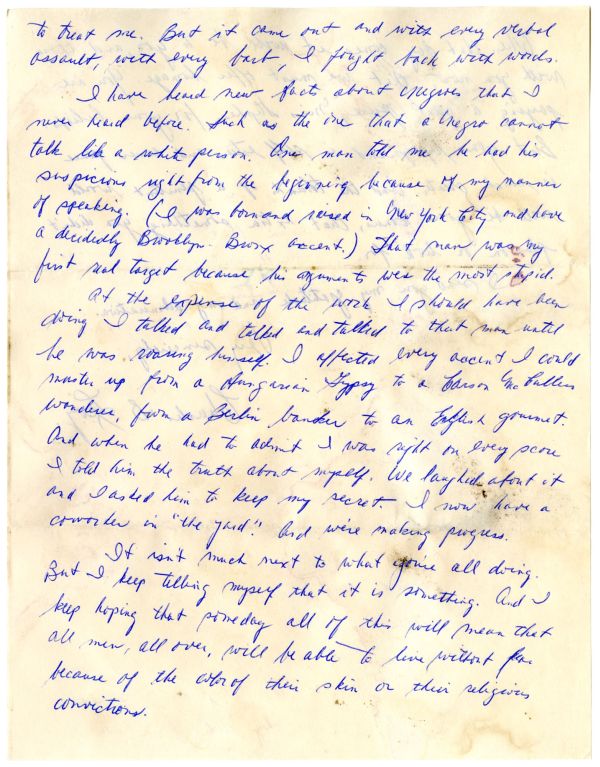 to treat me. But it came out and with every verbal
assault, with every barb, I fought back with words.
I have heard new facts about Negroes that I
never heard before. Such as the one that a Negro cannot
talk like a white person. One man told me he had his
suspicions right from the beginning because of my manner
of speaking. (I was born and raised in New York City and have
a decidedly Brooklyn-Bronx accent.) That man was my
first real target because his arguments were the most stupid.
At the expense of the work I should have been
doing I talked and talked and talked to that man until
he was roaring himself. I affected every accent I could
muster up from a Hungarian Gypsy to a Carson McCullers
wanderer, from a Berlin banker to an English gourmet.
And when he had to admit I was right on every score
I told him the truth about myself. We laughed about it
and I asked him to keep my secret. I now have a
coworker in "the yard". And we're making progress.
It isn't much next to what you're all doing.
But I keep telling myself that it is something. And I
keep hoping that someday all of this will mean that
all men, all over, will be able to live without fear
because of the color of their skin or their religious
convictions.